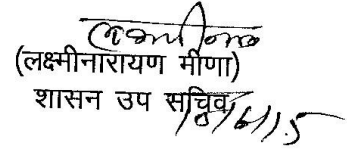 (लक्ष्मीनारायण मीणा)
शासन उप सचिव